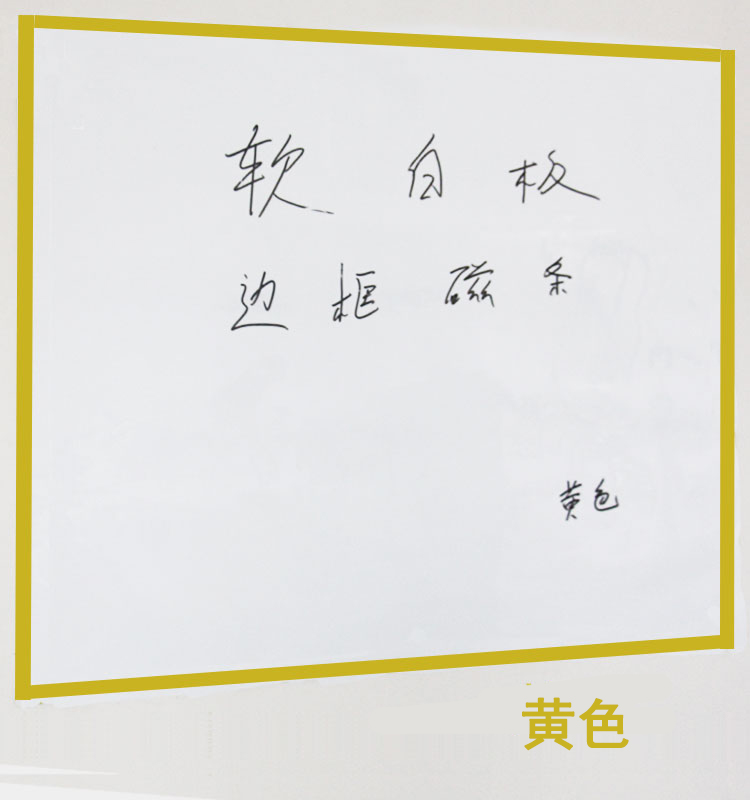 软白板
边框磁条
黄色
黄色